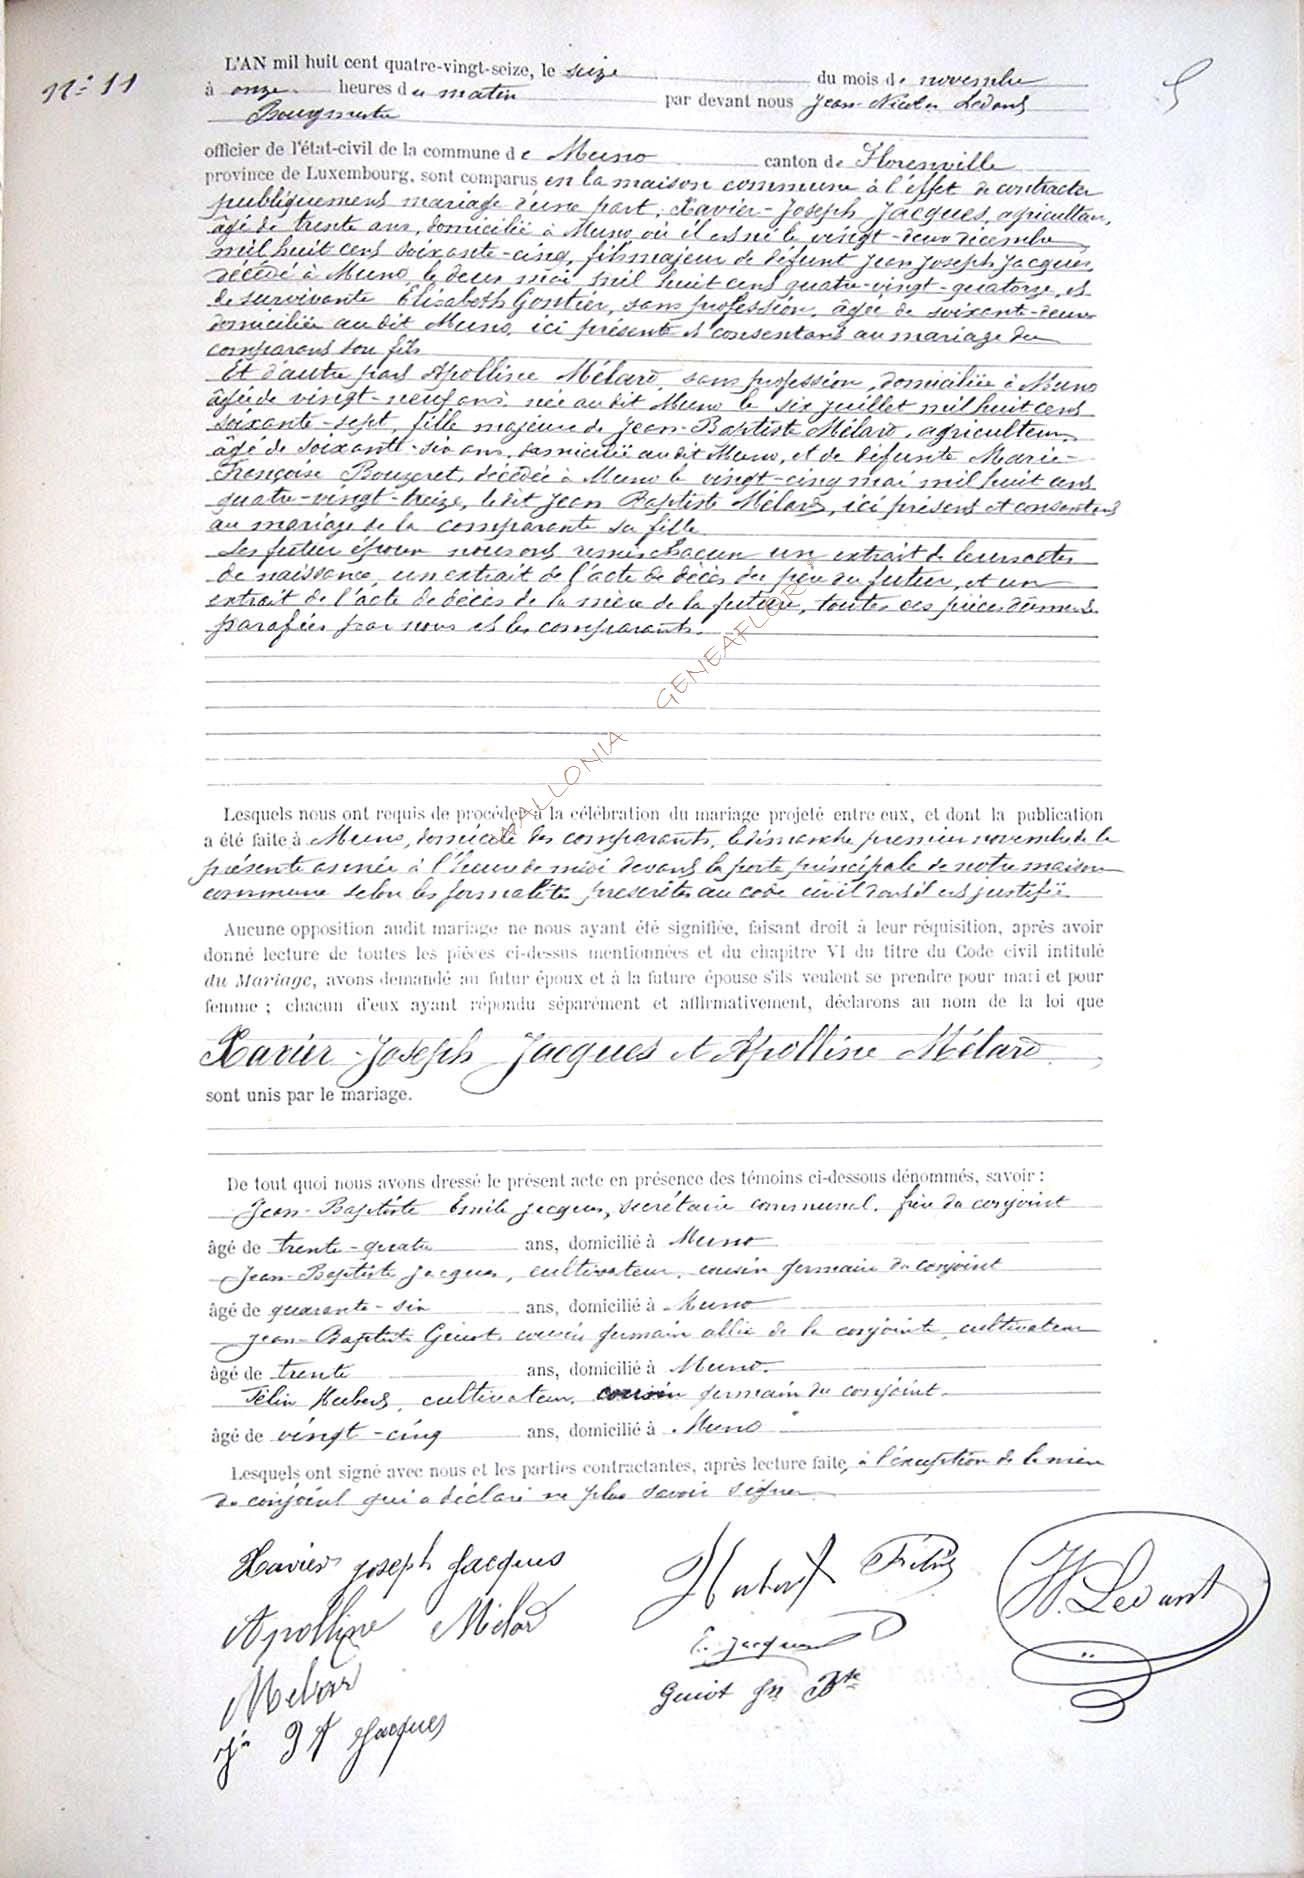 N° 11
L'AN mil huit cent quatre-vingt-seize, le seize du mois de novembre
à onze heures du matin par devant nous Jean-Nicolas Ledant
Bourgmestre
officier de l'état-civil de la commune de Muno canton de Florenville
province de Luxembourg, sont comparus en la maison commune à l'effet de contracter
publiquement mariage d'une part, Xavier-Joseph Jacques, agriculteur,
âgé de trente ans, domicilié à Muno, où il est né le vingt-deux décembre
mil huit cent soixante-cinq, fils majeur de défunt Jean Joseph Jacques,
décédé à Muno, le deux mai mil huit cent quatre-vingt-quatorze, et
de survivante Elisabeth Gontier, sans profession, âgée de soixante-deux
domiciliée au dit Muno, ici présente et consentant au mariage du
comparant son fils
Et d'autre part Apolline Mélard, sans profession, domiciliée à Muno
âgée de vingt-neuf ans, née au dit Muno le six juillet mil huit cent
soixante-sept, fille majeure de Jean-Baptiste Mélard, agriculteur,
âgé de soixante-six ans, domicilié au dit Muno, et de défunte Marie-
Françoise Bouzeret, décédée à Muno le vingt-cinq mai mil huit cent
quatre-vingt-treize, le dit Jean Baptiste Mélard, ici présent et consentant
au mariage de la comparante sa fille
Les futurs époux nous ont remis chacun un extrait de leurs actes
de naissance, un extrait de l'acte de décès du père du futur, et un
extrait de l'acte de décès de la mère de la future, toutes ces pièces dûment
parafées par nous et les comparants.
WALLONIA GENEAFLOR
Lesquels nous ont requis de procéder à la célébration du mariage projeté entre eux, et dont la publication
a été faite à Muno, domicile des comparants, le dimanche premier novembre de la
présente année à l'heure de midi devant la porte principale de notre maison
commune selon les formalités prescrites au code civil dont il est justifié
Aucune opposition audit mariage ne nous ayant été signifiée, faisant droit à leur réquisition, après avoir
donné lecture de toutes les pièces ci-dessus mentionnées et du chapitre VI du titre du Code civil intitulé
du Mariage, avons demandé au futur époux et à la future épouse s'ils veulent se prendre pour mari et pour
femme ; chacun d'eux ayant répondu séparément et affirmativement, déclarons au nom de la loi que
Xavier-Joseph Jacques et Apolline Mélard,
sont unis par le mariage.
De tout quoi nous avons dressé le présent acte en présence des témoins ci-dessous dénommés, savoir :
Jean-Baptiste Emile Jacques, secrétaire communal, frère du conjoint
âgé de trente-quatre ans, domicilié à Muno
Jean-Baptiste Jacques, cultivateur, cousin germain du conjoint
âgé de quarante-six ans, domicilié à Muno
Jean-Baptiste Guiot, cousin germain allié de la conjointe, cultivateur
âgé de trente ans, domicilié à Muno.
Félix Hubert, cultivateur, cousin germain du conjoint.
âgé de vingt-cinq ans, domicilié à Muno
Lesquels ont signé avec nous et les parties contractantes, après lecture faite, à l'exception de la mère
du conjoint qui a déclaré ne plus savoir signer
Xavier Joseph Jacques
Hubert Félix
Apolline Mélard
E. Jacques
Ledant
Melard
Guiot Jn Bte
Jn Bt Jacques